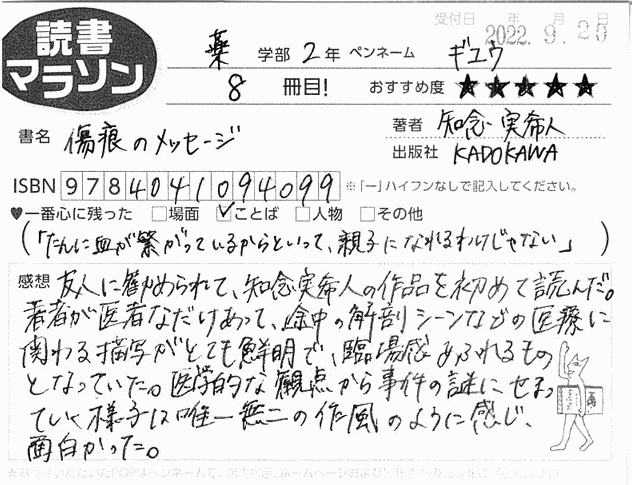 受付日 年 月 日
2022.9.20
読書
マラソン
薬 学部 2年 ペンネーム ギユウ
8 冊目! おすすめ度 ★★★★★
書名 傷痕のメッセージ
著者 知念 実希人
出版社 KADOKAWA
ISBN 9784041094099 ※「-」ハイフンなしで記入してください。
♥一番心に残った □場面 ☑ことば □人物 □その他
(「たんに血が繋がっているからといって、親子になれるわけじゃない」)
感想 友人に勧められて、知念実希人の作品を初めて読んだ。
著者が医者なだけあって、途中の解剖シーンなどの医療に
関わる描写がとても鮮明で、臨場感あふれるもの
となっていた。医学的な観点から事件の謎にせまっ
ていく様子は唯一無二の作風のように感じ、
面白かった。